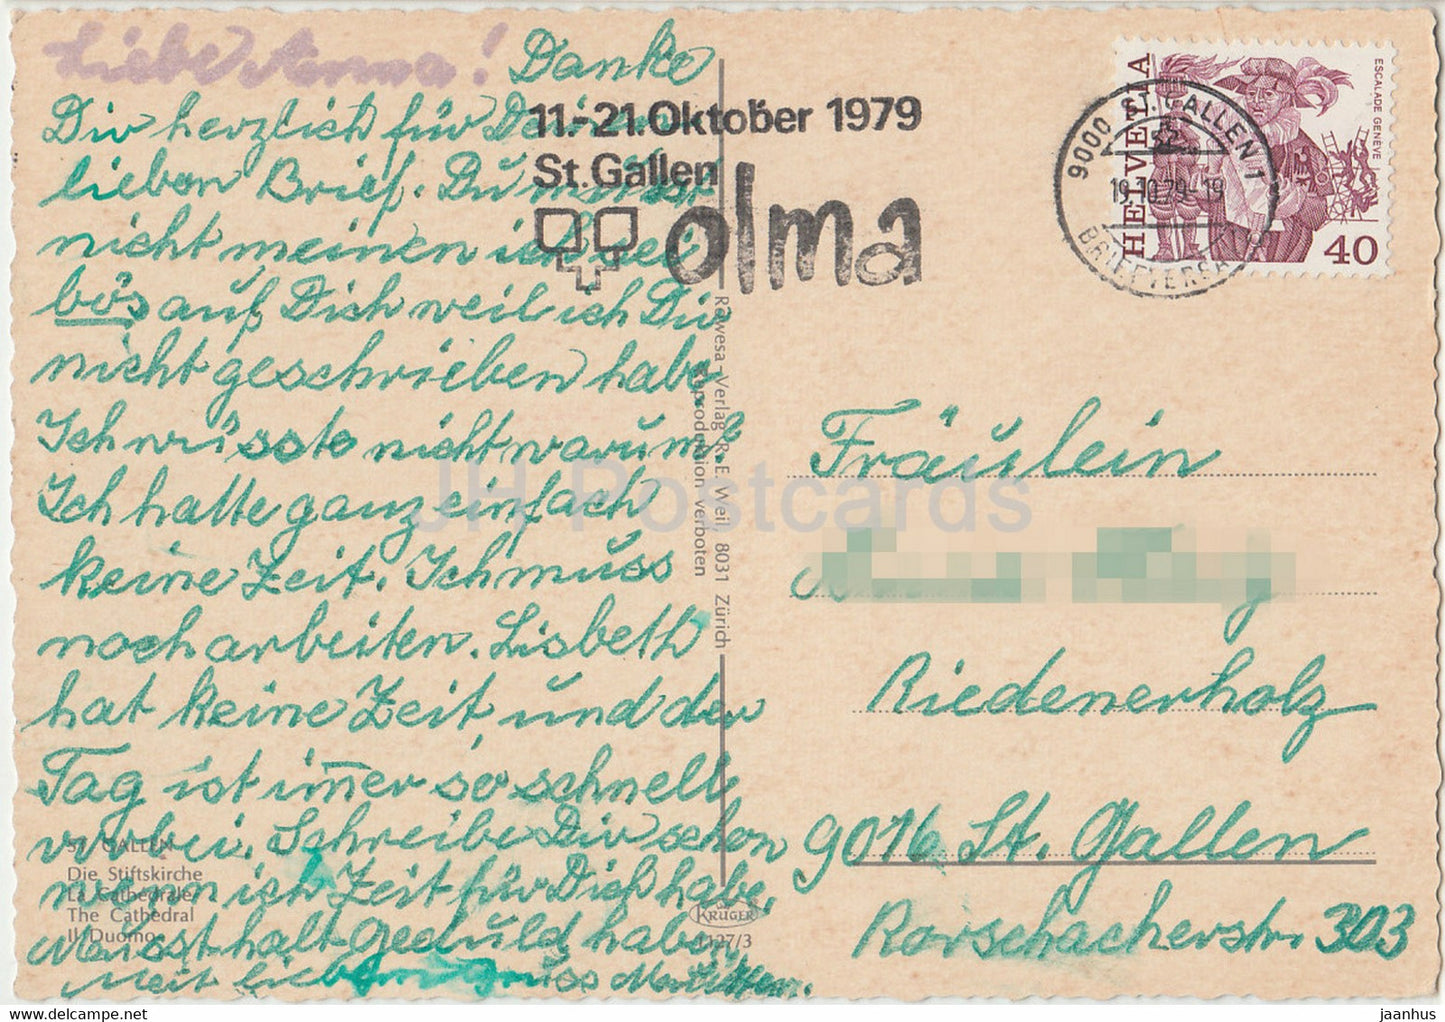 Liebe Anna! Danke
Dir herzlich für Deinen
lieben Brief. Du musst
nicht meinen ich sei
bös auf Dich weil ich Dir
nicht geschrieben habe.
Ich wüsste nicht warum?
Ich hatte ganz einfach
keine Zeit. Ich muss
noch arbeiten. Lisbeth
hat keine Zeit, und der
Tag ist immer so schnell
vorbei. Schreibe Dir schon
wenn ich Zeit für Dich habe,
Musst halt Geduld haben
Mit lieb
11.-21. Oktober 1979
St. Gallen
olma
9000 ST. GALLEN 1
19.10.79-19
BRIEFVERSAND
HELVETIA
ESCALADE GENÈVE
40
Fräulein
Riedenerholz
9016 St. Gallen
Rorschacherstr. 303
ST. GALLEN
Die Stiftskirche
La Cathédrale
The Cathedral
Il Duomo
Rawesa-Verlag R. E. Weil 8031 Zürich
Reproduktion verboten
KRÜGER
1127/3
JH Postcards
hip.com
jaanhus